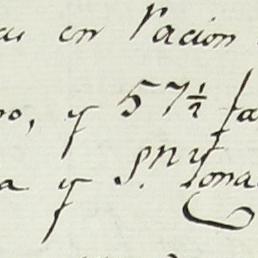 en Pacion
no, y 57½ fa
a y Sn. Yona